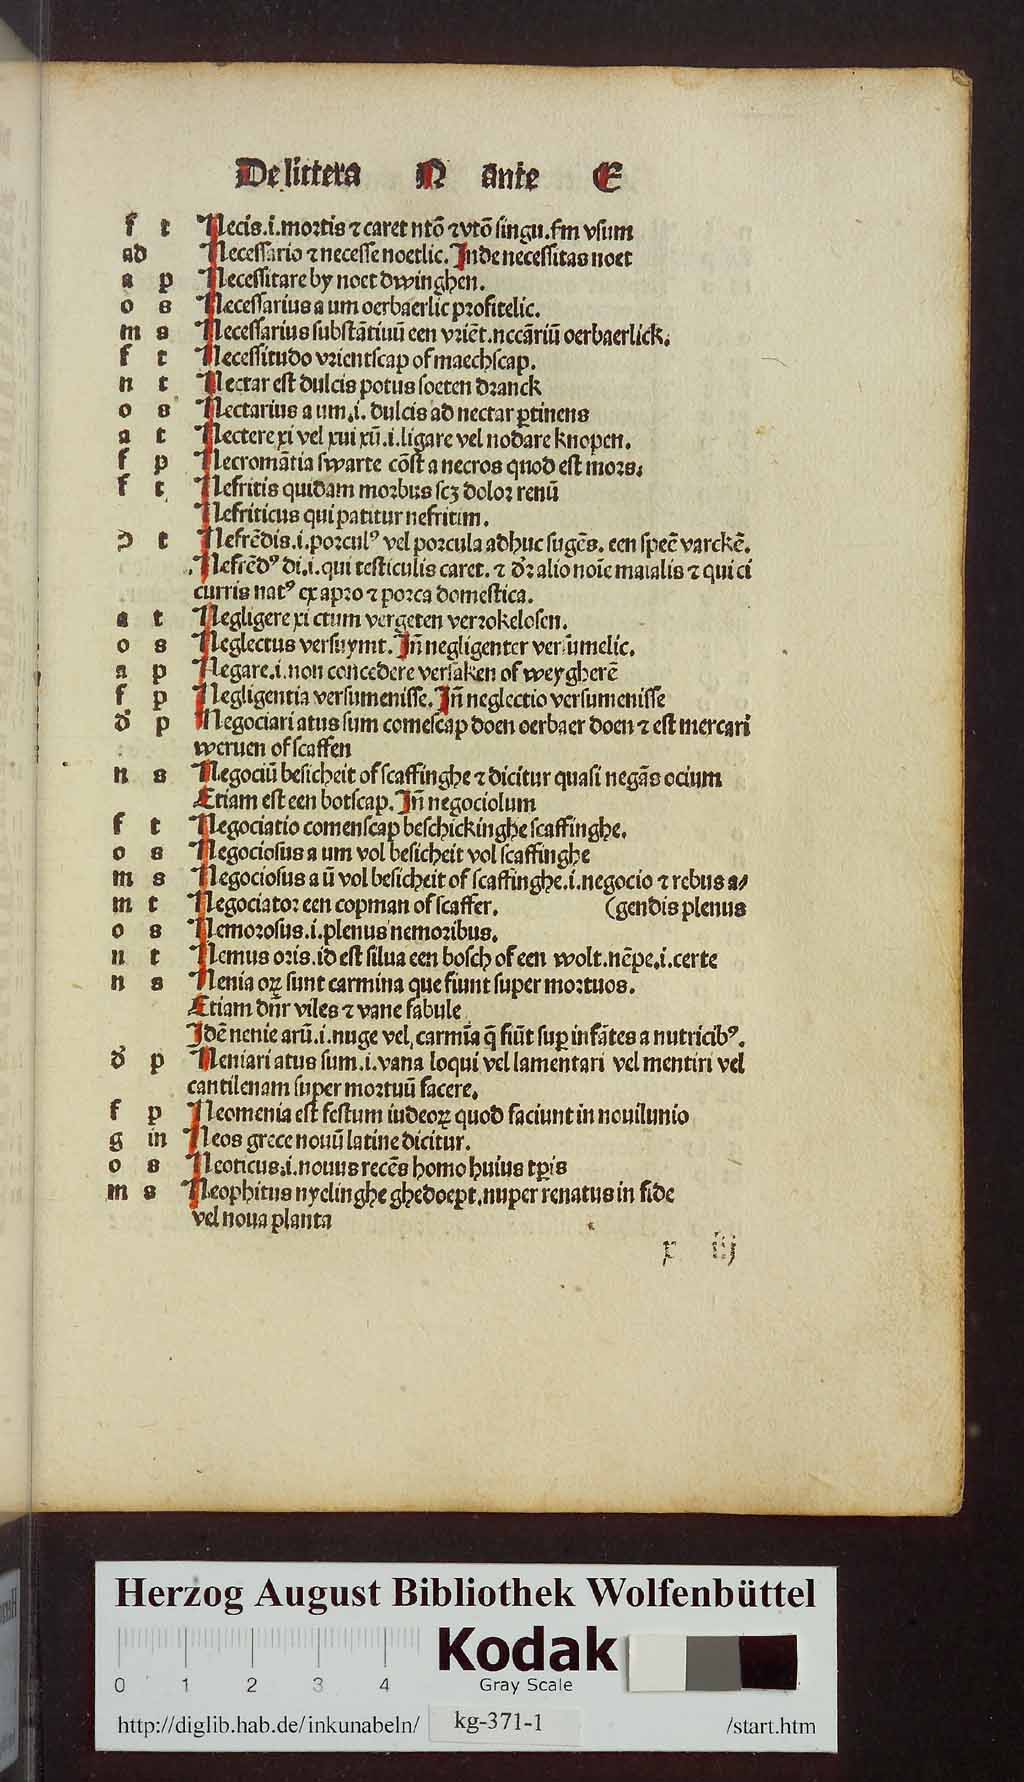 De littera N ante E
f t Necis.i.mortis ⁊ caret ntō ⁊ vtō singu.fm vsum
ad Necessario ⁊ necesse noetlic. Inde necessitas noet
a p Necessitare by noet dwinghen.
o s Necessarius a um oerbaerlic profitelic.
m s Necessarius substātiuū een vriēt.nccāriū oerbaerlick.
f t Necessitudo vrientscap of maechscap.
n t Nectar est dulcis potus soeten dranck
o s Nectarius a um.i. dulcis ad nectar ꝑtinens
a t Nectere xi vel xui xū.i.ligare vel nodare knopen.
f p Necromātia swarte cōst a necros quod est mors.
f t Nefritis quidam morbus scꝫ dolor renū
Nefriticus qui patitur nefritim.
ꝺ t Nefrēdis.i.porculꝰ vel porcula adhuc sugēs. een speē varckē.
Nefrēdꝰ di.i.qui testiculis caret. ⁊ dr̄ alio noīe maialis ⁊ qui ci
curris natꝰ ex apro ⁊ porca domestica.
a t Negligere xi ctum vergeten verrokelosen.
o s Neglectus versuymt. Iñ negligenter versūmelic.
a p Negare.i.non concedere versaken of weygherē
f p Negligentia versumenisse. Iñ neglectio versumenisse
d̄ p Negociari atus sum comescap doen oerbaer doen ⁊ est mercari
weruen of scaffen
n s Negociū besicheit of scaffinghe ⁊ dicitur quasi negās ocium
Etiam est een botscap. Iñ negociolum
f t Negociatio comenscap beschickinghe scaffinghe.
o s Negociosus a um vol besicheit vol scaffinghe
m s Negociosus a ū vol besicheit of scaffinghe.i.negocio ⁊ rebus a⸗
m t Negociator een copman of scaffer. (gendis plenus
o s Nemorosus.i.plenus nemoribus.
n t Nemus oris.id est silua een bosch of een wolt.nēpe.i.certe
n s Nenia oꝝ sunt carmina que fiunt super mortuos.
Etiam dñr viles ⁊ vane fabule
Idē nenie arū.i.nuge vel carmīa q̄ fiūt suꝑ infātes a nutricibꝰ.
d̄ p Neniari atus sum.i.vana loqui vel lamentari vel mentiri vel
cantilenam super mortuū facere.
f p Neomenia est festum iudeoꝝ quod faciunt in nouilunio
g in Neos grece nouū latine dicitur.
o s Neoticus.i.nouus recēs homo huius tꝑis
m s Neophitus nyelinghe ghedoept.nuper renatus in fide
vel noua planta
p iij
Herzog August Bibliothek Wolfenbüttel
Kodak
Gray Scale
0 1 2 3 4
http://diglib.hab.de/inkunabeln/ kg-371-1 /start.htm